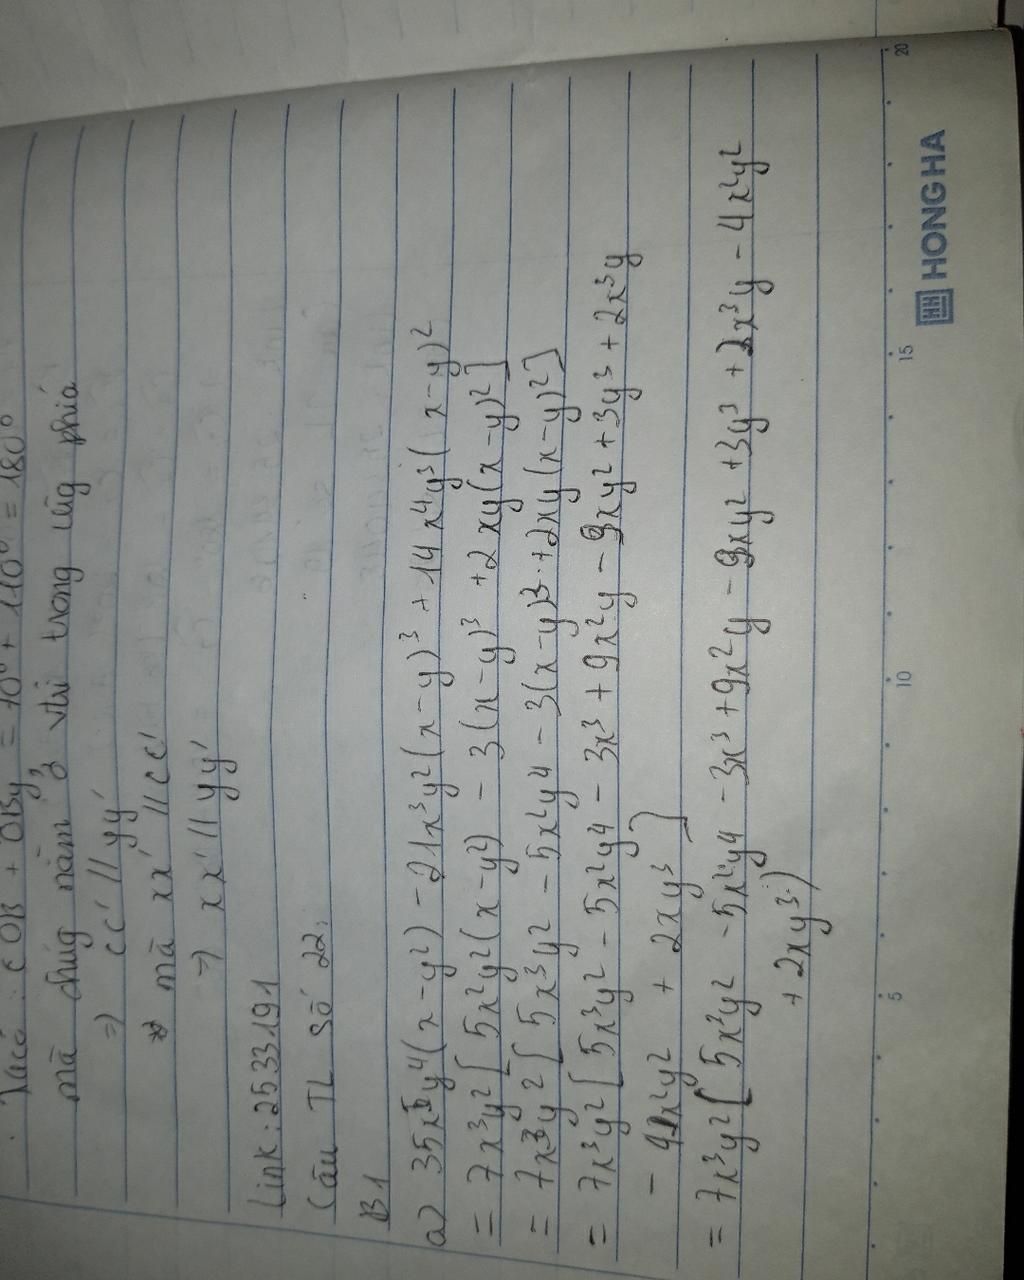 Ta có: COB + OBy' = 70° + 110° = 180°
mà chúng nằm ở vtrí trong cùng phía
=> cc' // yy'
mà xx' // cc'
=> xx' // yy'
Link: 2533191
Câu TL số 22:
B1
a) 35x⁵y⁴(x-y²) - 21x³y²(x-y)³ + 14x⁴y³(x-y)²
= 7x³y²[5x²y²(x-y²) - 3(x-y)³ + 2xy(x-y)²]
= 7x³y²[5x³y² - 5x²y⁴ - 3(x-y)³ + 2xy(x-y)²]
= 7x³y²[5x³y² - 5x²y⁴ - 3x³ + 9x²y - 9xy² + 3y³ + 2x³y
- 4x²y² + 2xy³]
= 7x³y²[5x³y² - 5x²y⁴ - 3x³ + 9x²y - 9xy² + 3y³ + 2x³y - 4x²y²
+ 2xy³)
5 10 15 20
HH HONG HA